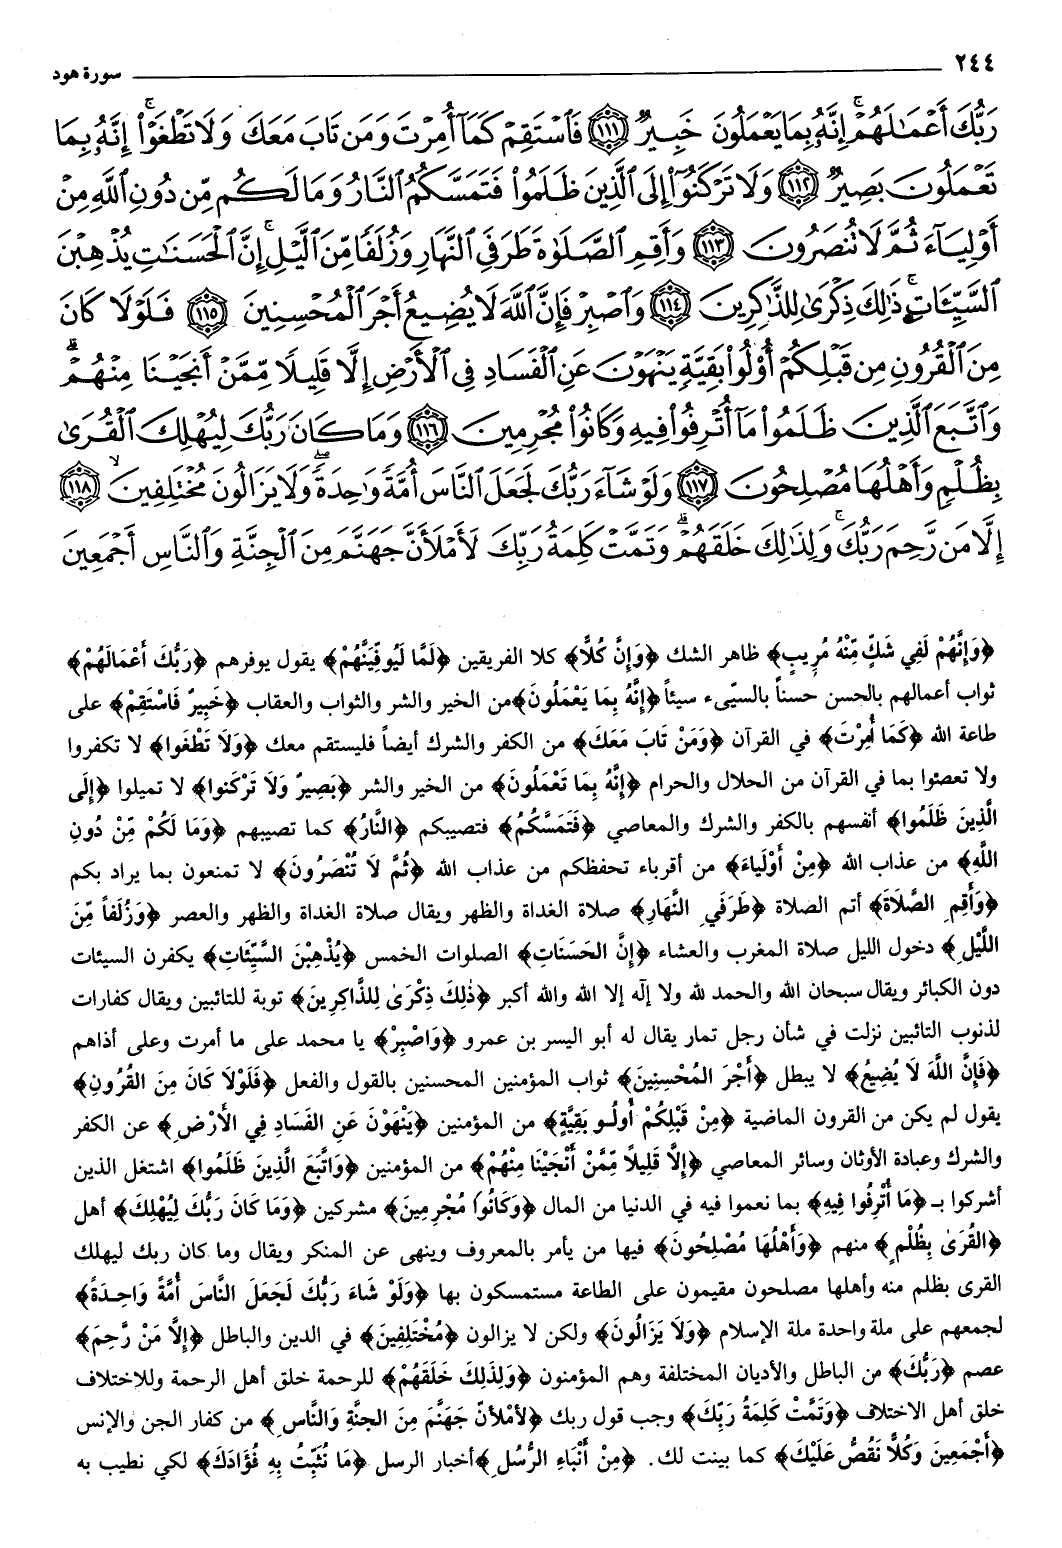 ٢٤٤ سورة هود
رَبُّكَ أَعْمَٰلَهُمْ ۚ إِنَّهُۥ بِمَا يَعْمَلُونَ خَبِيرٌ ﴿١١١﴾ فَٱسْتَقِمْ كَمَآ أُمِرْتَ وَمَن تَابَ مَعَكَ وَلَا تَطْغَوْا۟ ۚ إِنَّهُۥ بِمَا
تَعْمَلُونَ بَصِيرٌ ﴿١١٢﴾ وَلَا تَرْكَنُوٓا۟ إِلَى ٱلَّذِينَ ظَلَمُوا۟ فَتَمَسَّكُمُ ٱلنَّارُ وَمَا لَكُم مِّن دُونِ ٱللَّهِ مِنْ
أَوْلِيَآءَ ثُمَّ لَا تُنصَرُونَ ﴿١١٣﴾ وَأَقِمِ ٱلصَّلَوٰةَ طَرَفَىِ ٱلنَّهَارِ وَزُلَفًا مِّنَ ٱلَّيْلِ ۚ إِنَّ ٱلْحَسَنَٰتِ يُذْهِبْنَ
ٱلسَّيِّـَٔاتِ ۚ ذَٰلِكَ ذِكْرَىٰ لِلذَّٰكِرِينَ ﴿١١٤﴾ وَٱصْبِرْ فَإِنَّ ٱللَّهَ لَا يُضِيعُ أَجْرَ ٱلْمُحْسِنِينَ ﴿١١٥﴾ فَلَوْلَا كَانَ
مِنَ ٱلْقُرُونِ مِن قَبْلِكُمْ أُو۟لُوا۟ بَقِيَّةٍ يَنْهَوْنَ عَنِ ٱلْفَسَادِ فِى ٱلْأَرْضِ إِلَّا قَلِيلًا مِّمَّنْ أَنجَيْنَا مِنْهُمْ ۗ
وَٱتَّبَعَ ٱلَّذِينَ ظَلَمُوا۟ مَآ أُتْرِفُوا۟ فِيهِ وَكَانُوا۟ مُجْرِمِينَ ﴿١١٦﴾ وَمَا كَانَ رَبُّكَ لِيُهْلِكَ ٱلْقُرَىٰ
بِظُلْمٍ وَأَهْلُهَا مُصْلِحُونَ ﴿١١٧﴾ وَلَوْ شَآءَ رَبُّكَ لَجَعَلَ ٱلنَّاسَ أُمَّةً وَٰحِدَةً ۖ وَلَا يَزَالُونَ مُخْتَلِفِينَ ۙ ﴿١١٨﴾
إِلَّا مَن رَّحِمَ رَبُّكَ ۚ وَلِذَٰلِكَ خَلَقَهُمْ ۗ وَتَمَّتْ كَلِمَةُ رَبِّكَ لَأَمْلَأَنَّ جَهَنَّمَ مِنَ ٱلْجِنَّةِ وَٱلنَّاسِ أَجْمَعِينَ
﴿وَإِنَّهُمْ لَفِي شَكٍّ مِنْهُ مُرِيبٍ﴾ ظاهر الشك ﴿وَإِنَّ كُلًّا﴾ كلا الفريقين ﴿لَمَّا لَيُوفِّيَنَّهُمْ﴾ يقول يوفرهم ﴿رَبُّكَ أَعْمَالَهُمْ﴾
ثواب أعمالهم بالحسن حسناً بالسيّىء سيئاً ﴿إِنَّهُ بِمَا يَعْمَلُونَ﴾من الخير والشر والثواب والعقاب ﴿خَبِيرٌ فَاسْتَقِمْ﴾ على
طاعة الله ﴿كَمَا أُمِرْتَ﴾ في القرآن ﴿وَمَنْ تَابَ مَعَكَ﴾ من الكفر والشرك أيضاً فليستقم معك ﴿وَلَا تَطْغَوا﴾ لا تكفروا
ولا تعصئوا بما في القرآن من الحلال والحرام ﴿إِنَّهُ بِمَا تَعْمَلُونَ﴾ من الخير والشر ﴿بَصِيرٌ وَلَا تَرْكَنوا﴾ لا تميلوا ﴿إِلَى
الَّذِينَ ظَلَمُوا﴾ أنفسهم بالكفر والشرك والمعاصي ﴿فَتَمَسَّكُمُ﴾ فتصيبكم ﴿النَّارُ﴾ كما تصيبهم ﴿وَمَا لَكُمْ مِّنْ دُونِ
اللَّهِ﴾ من عذاب الله ﴿مِنْ أَوْلَيَاءَ﴾ من أقرباء تحفظكم من عذاب الله ﴿ثُمَّ لَا تُنْصَرُونَ﴾ لا تمنعون بما يراد بكم
﴿وَأَقِمِ الصَّلَاةَ﴾ أتم الصلاة ﴿طَرَفَيِ النَّهَارِ﴾ صلاة الغداة والظهر ويقال صلاة الغداة والظهر والعصر ﴿وَزُلَفاً مِّنَ
اللَّيْلِ﴾ دخول الليل صلاة المغرب والعشاء ﴿إِنَّ الحَسَنَاتِ﴾ الصلوات الخمس ﴿يُذْهِبْنَ السَّيِّئَاتِ﴾ يكفرن السيئات
دون الكبائر ويقال سبحان الله والحمد لله ولا إله إلا الله والله أكبر ﴿ذٰلِكَ ذِكْرَىٰ لِلذَّاكِرِينَ﴾ توبة للتائبين ويقال كفارات
لذنوب التائبين نزلت في شأن رجل تمار يقال له أبو اليسر بن عمرو ﴿وَاصْبِرْ﴾ يا محمد على ما أمرت وعلى أذاهم
﴿فَإِنَّ اللَّهَ لَا يُضِيعُ﴾ لا يبطل ﴿أَجْرَ المُحْسِنِينَ﴾ ثواب المؤمنين المحسنين بالقول والفعل ﴿فَلَوْلَا كَانَ مِنَ القُرُونِ﴾
يقول لم يكن من القرون الماضية ﴿مِنْ قَبْلِكُمْ أُولُو بَقِيَّةٍ﴾ من المؤمنين ﴿يَنْهَوْنَ عَنِ الفَسَادِ فِي الأَرْضِ﴾ عن الكفر
والشرك وعبادة الأوثان وسائر المعاصي ﴿إِلَّا قَلِيلًا مِّمَّنْ أَنْجَيْنَا مِنْهُمْ﴾ من المؤمنين ﴿وَاتَّبَعَ الَّذِينَ ظَلَمُوا﴾ اشتغل الذين
أشركوا بـ ﴿مَا أُتْرِفُوا فِيهِ﴾ بما نعموا فيه في الدنيا من المال ﴿وَكَانُوا مُجْرِمِينَ﴾ مشركين ﴿وَمَا كَانَ رَبُّكَ لِيُهْلِكَ﴾ أهل
﴿القُرَىٰ بِظُلْمٍ﴾ منهم ﴿وَأَهْلُهَا مُصْلِحُونَ﴾ فيها من يأمر بالمعروف وينهى عن المنكر ويقال وما كان ربك ليهلك
القرى بظلم منه وأهلها مصلحون مقيمون على الطاعة مستمسكون بها ﴿وَلَوْ شَاءَ رَبُّكَ لَجَعَلَ النَّاسَ أُمَّةً وَاحِدَةً﴾
لجمعهم على ملة واحدة ملة الإسلام ﴿وَلَا يَزَالُونَ﴾ ولكن لا يزالون ﴿مُخْتَلِفِينَ﴾ في الدين والباطل ﴿إِلَّا مَنْ رَّحِمَ﴾
عصم ﴿رَبُّكَ﴾ من الباطل والأديان المختلفة وهم المؤمنون ﴿وَلِذَلِكَ خَلَقَهُمْ﴾ للرحمة خلق أهل الرحمة وللاختلاف
خلق أهل الاختلاف ﴿وَتَمَّتْ كَلِمَةُ رَبِّكَ﴾ وجب قول ربك ﴿لأَمْلأَنَّ جَهَنَّمَ مِنَ الجِنَّةِ وَالنَّاسِ﴾ من كفار الجن والإنس
﴿أَجْمَعِينَ وَكُلاًّ نَقُصُّ عَلَيْكَ﴾ كما بينت لك. ﴿مِنْ أَنْبَاءِ الرُّسُلِ﴾أخبار الرسل ﴿مَا نُثَبِّتُ بِهِ فُؤَادَكَ﴾ لكي نطيب به